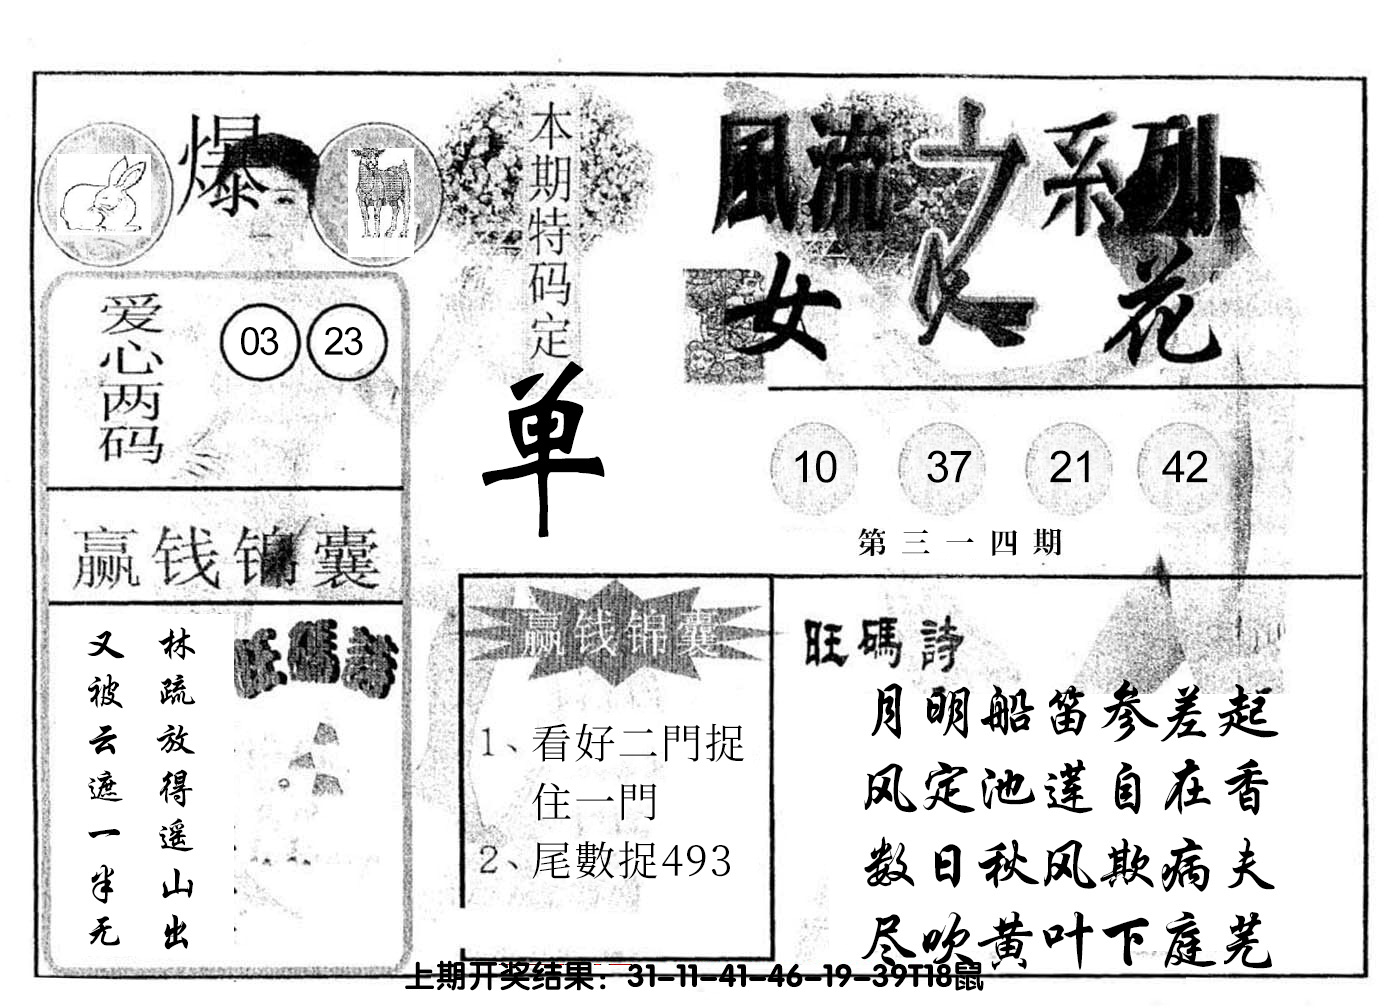 爆
爱心两码
03 23
赢钱锦囊
林疏放得遥山出
又被云遮一半无
旺碼詩
本期特码定
单
風流之系列
女人花
10 37 21 42
第三一四期
赢钱锦囊
1、看好二門捉
住一門
2、尾數捉493
旺碼詩
月明船笛参差起
风定池莲自在香
数日秋风欺病夫
尽吹黄叶下庭芜
上期开奖结果：31-11-41-46-19-39T18鼠